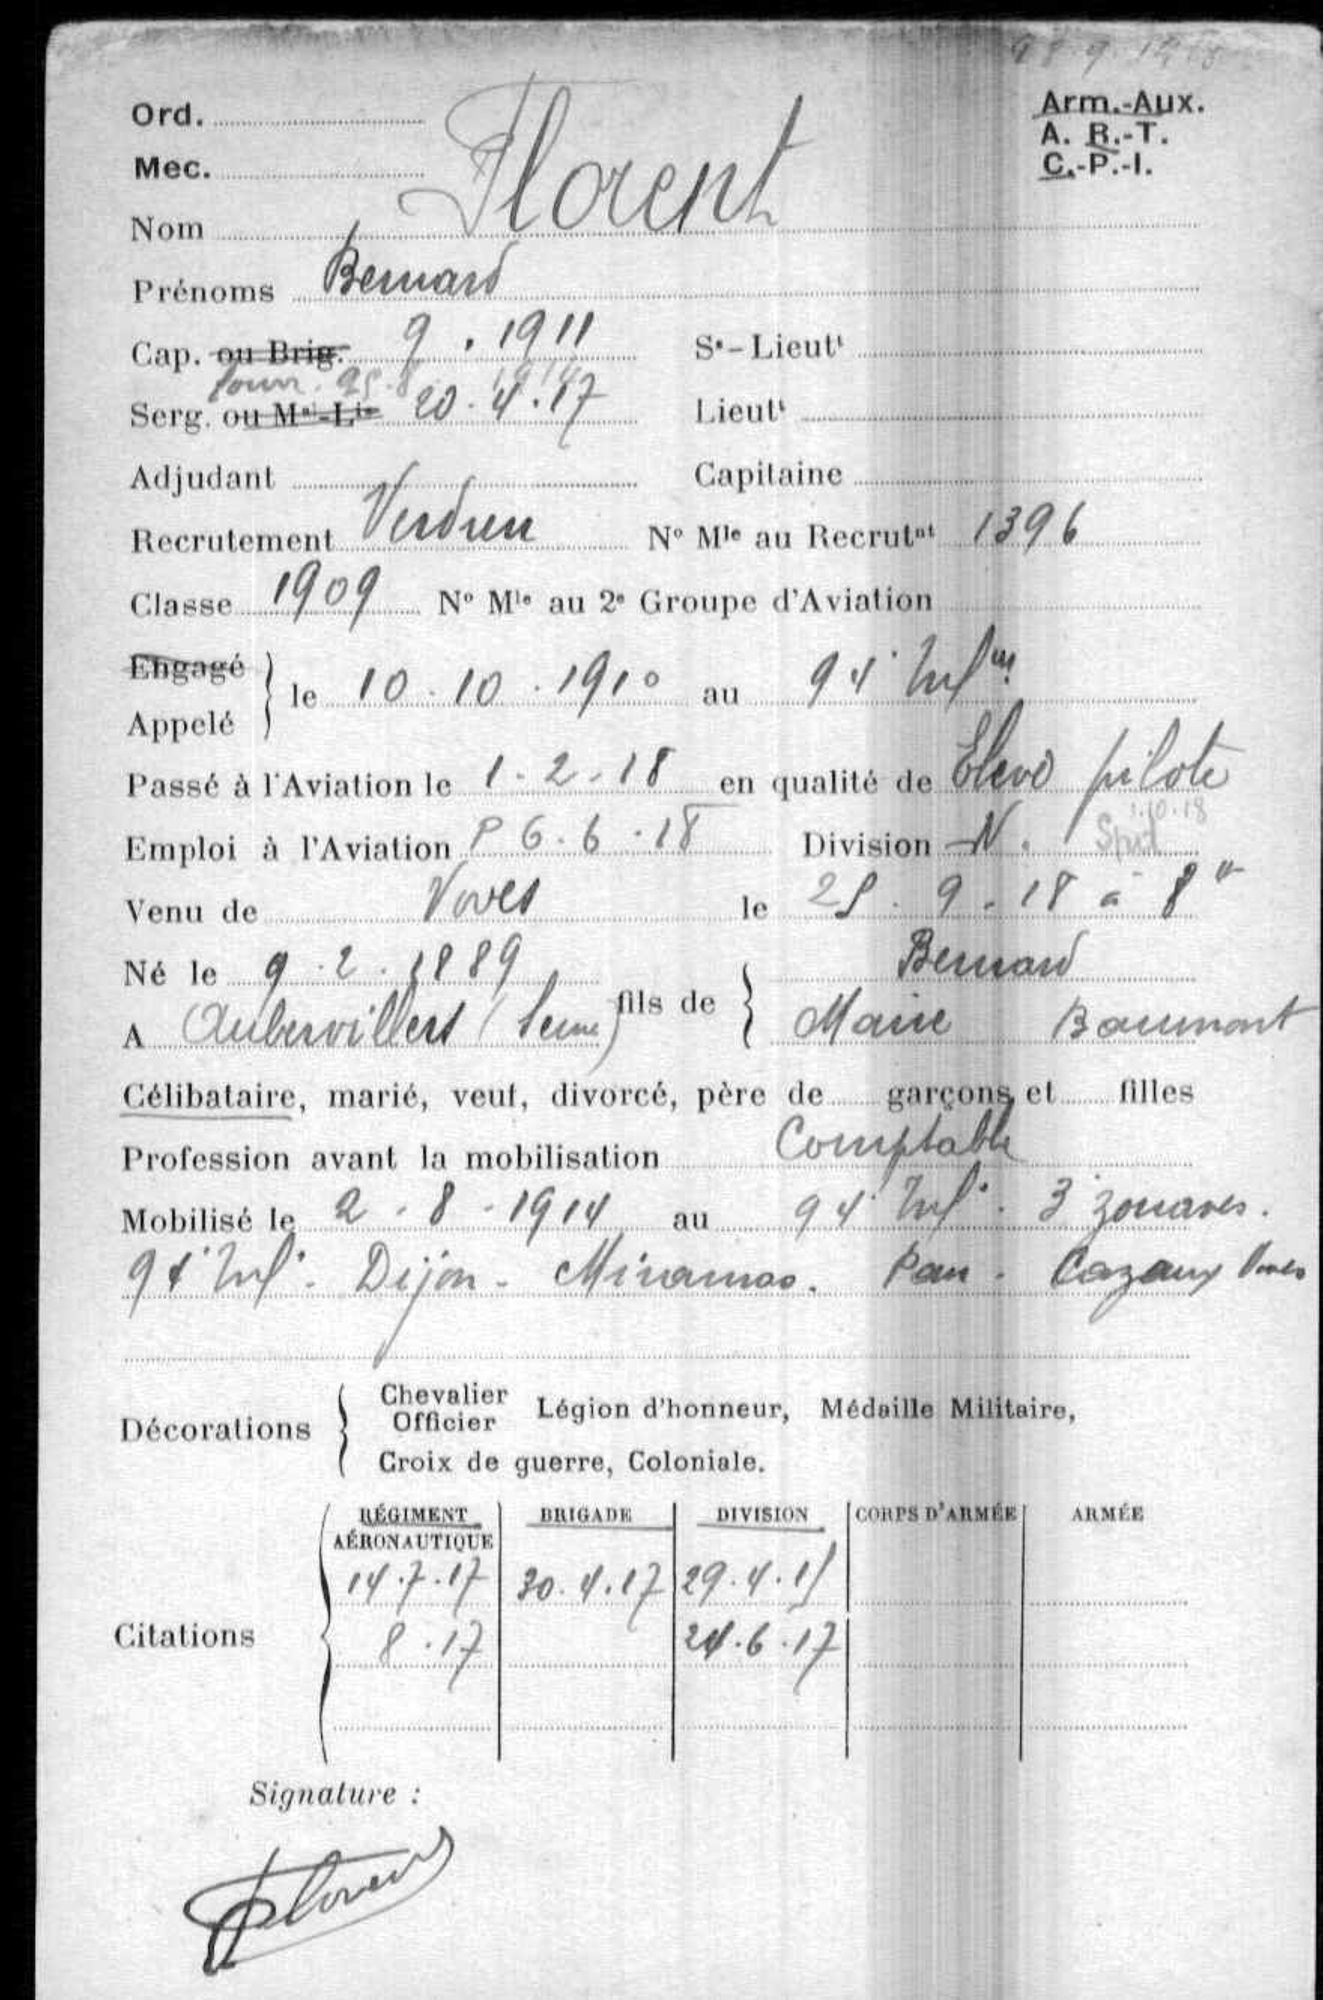 Ord.
Arm.-Aux.
A. R.-T.
C.-P.-I.
Mec.
Nom Florent
Prénoms Bernard
Cap. ou Brig. 9.1911
Sˢ-Lieutᵗ
Four. 25.8. 1914
Serg. ou Mᵃˡ-Lⁱˢ 20.4.17
Lieutᵗ
Adjudant
Capitaine
Recrutement Verdun Nº Mˡᵉ au Recrutⁿᵗ 1396
Classe 1909 Nº Mˡᵉ au 2ᵉ Groupe d'Aviation
Engagé
Appelé
le 10.10.1910 au 94ᵉ Infⁱᵉ
Passé à l'Aviation le 1.2.18 en qualité de Elève pilote
1.10.18
Emploi à l'Aviation P 6.6.18 Division N. Spad
Venu de Voves le 25.9.18 à 8ʰ
Né le 9.2.1889
A Aubervilliers (Seine)
fils de Bernard
Marie Baumont
Célibataire, marié, veuf, divorcé, père de garçons et filles
Profession avant la mobilisation Comptable
Mobilisé le 2.8.1914 au 94ᵉ Infⁱᵉ. 3ᵉ zouaves.
94ᵉ Infⁱᵉ. Dijon - Miramas. Pau. Cazaux Voves
Décorations
Chevalier
Officier
Légion d'honneur, Médaille Militaire,
Croix de guerre, Coloniale.
RÉGIMENT BRIGADE DIVISION CORPS D'ARMÉE ARMÉE
AÉRONAUTIQUE
14.7.17 30.4.17 29.4.15
Citations
8.17 24.6.17
Signature :
Florent